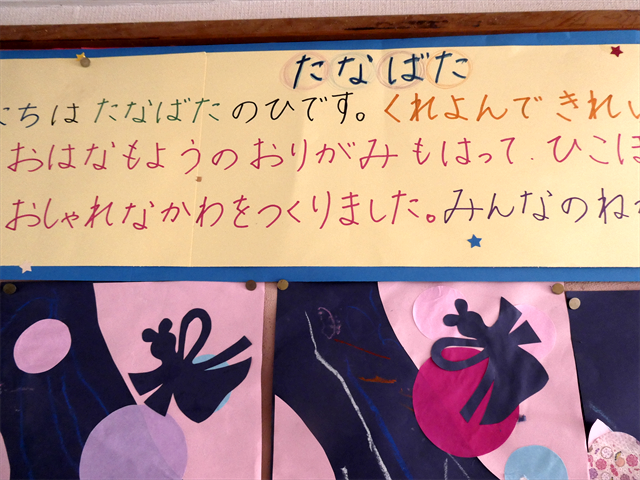 たなばた
ちは たなばたのひです。くれよんできれい
おはなもようのおりがみもはって、ひこぼ
おしゃれなかわをつくりました。みんなのね